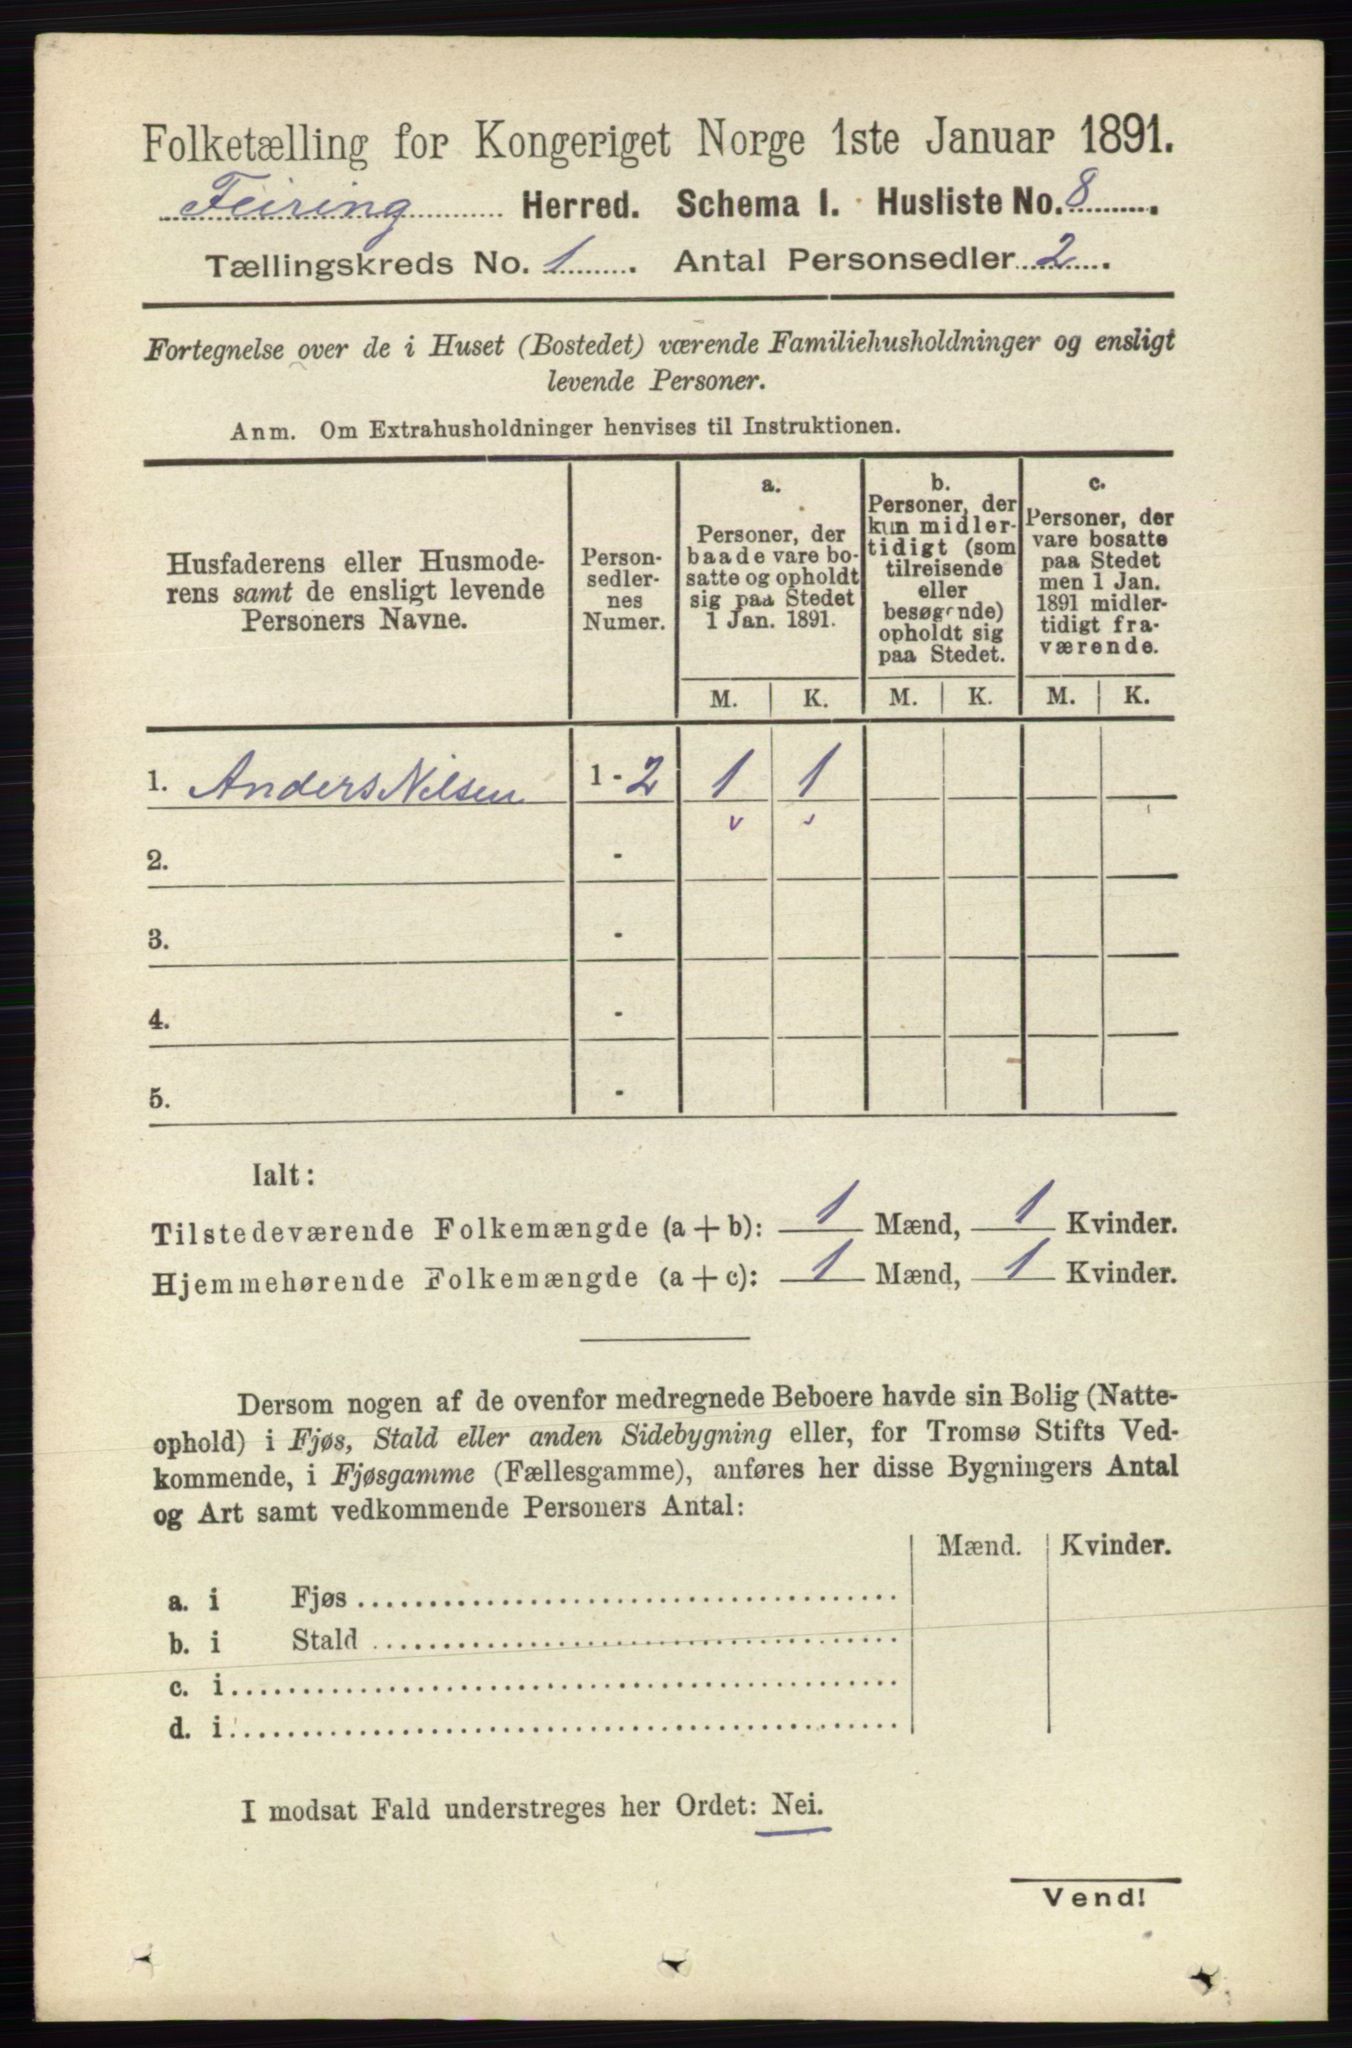 Folketælling for Kongeriget Norge 1ste Januar 1891.
Feiring Herred. Schema I. Husliste No. 8.
Tællingskreds No. 1. Antal Personsedler 2.
Fortegnelse over de i Huset (Bostedet) værende Familiehusholdninger og ensligt
levende Personer.
Anm. Om Extrahusholdninger henvises til Instruktionen.
Husfaderens eller Husmode-
rens samt de ensligt levende
Personers Navne.
Person-
sedler-
nes
Numer.
a.
Personer, der
baade vare bo-
satte og opholdt
sig paa Stedet
1 Jan. 1891.
b.
Personer, der
kun midler-
tidigt (som
tilreisende
eller
besøgende)
opholdt sig
paa Stedet.
c.
Personer, der
vare bosatte
paa Stedet
men 1 Jan.
1891 midler-
tidigt fra-
værende.
M. K. M. K. M. K.
1. Anders Nilsen 1-2 1 1
2. -
3. -
4. -
5. -
Ialt:
Tilstedeværende Folkemængde (a + b): 1 Mænd, 1 Kvinder.
Hjemmehørende Folkemængde (a + c): 1 Mænd, 1 Kvinder.
Dersom nogen af de ovenfor medregnede Beboere havde sin Bolig (Natte-
ophold) i Fjøs, Stald eller anden Sidebygning eller, for Tromsø Stifts Ved-
kommende, i Fjøsgamme (Fællesgamme), anføres her disse Bygningers Antal
og Art samt vedkommende Personers Antal:
Mænd. Kvinder.
a. i Fjøs
b. i Stald
c. i
d. i
I modsat Fald understreges her Ordet: Nei.
Vend!